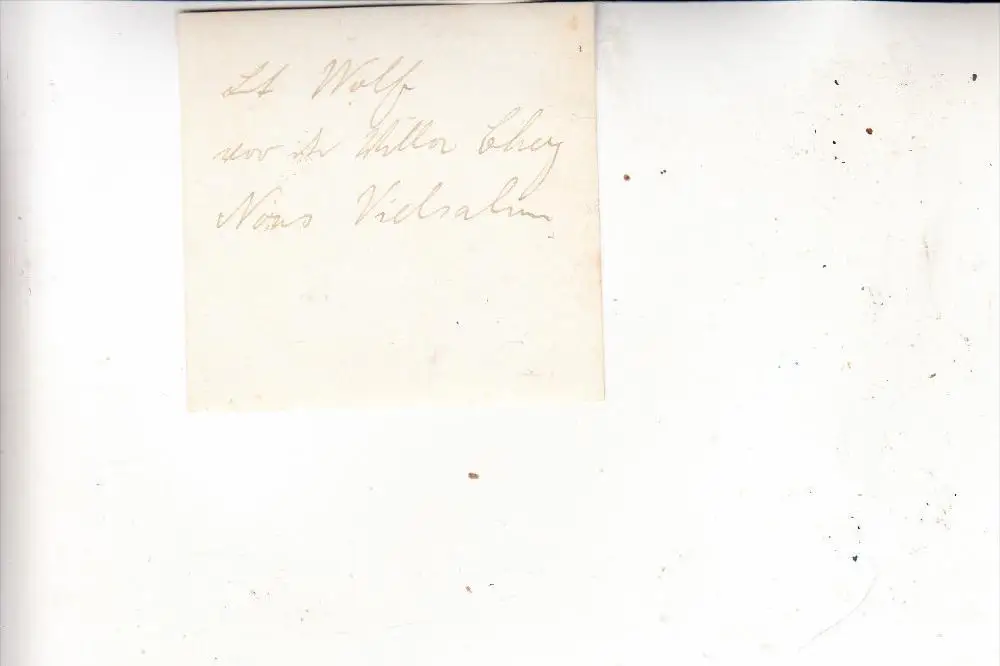 Lt Wolf
vor der Villa Chey
Nous Vielsalm